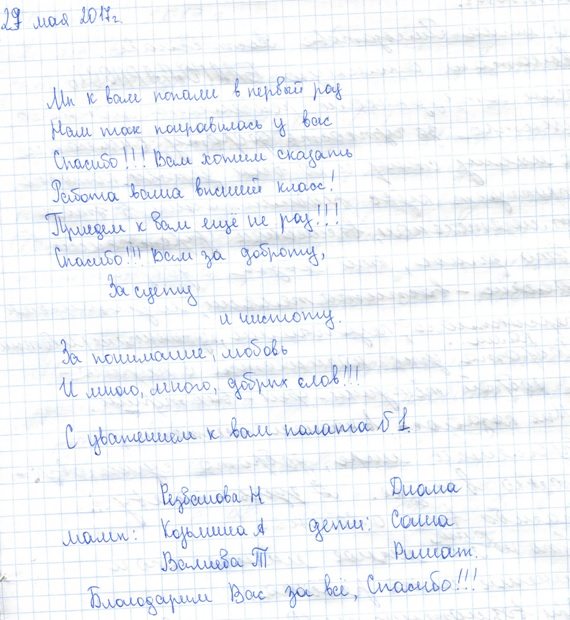 29 мая 2017г.
Мы к вам попали в первый раз
Нам так понравилось у вас
Спасибо!!! Вам хотим сказать
Работа ваша высший класс!
Приедем к вам ещё не раз!!!
Спасибо!!! Вам за доброту,
За суету
и чистоту.
За понимание, любовь
И много, много, добрых слов!!!
С уважением к вам палата №1.
Резбанова Н Диана
мамы: Козьмина А дети: Саша
Валиева Т Ришат.
Благодарим Вас за всё, Спасибо!!!